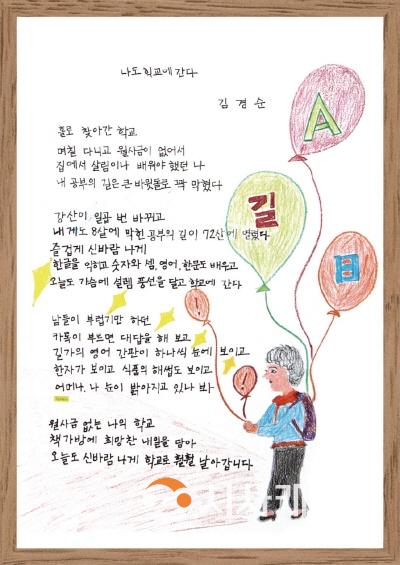 나도 학교에 간다
김 경 순
홀로 찾아간 학교
며칠 다니고 월사금이 없어서
집에서 살림이나 배워야 했던 나
내 공부의 길은 큰 바윗돌로 꽉 막혔다
강산이 일곱 번 바뀌고
내게도 8살에 막힌 공부의 길이 72살에 열렸다
즐겁게 신바람 나게
한글을 익히고 숫자와 셈, 영어, 한문도 배우고
오늘도 가슴에 설렘 풍선을 달고 학교에 간다
남들이 부럽기만 하던
카톡이 부르면 대답을 해 보고
길가의 영어 간판이 하나씩 눈에 보이고
한자가 보이고 식품의 해썹도 보이고
어머나, 나 눈이 밝아지고 있나 봐
월사금 없는 나의 학교
책가방에 희망찬 내일을 담아
오늘도 신바람 나게 학교로 훨훨 날아갑니다
A
길
日
!
1